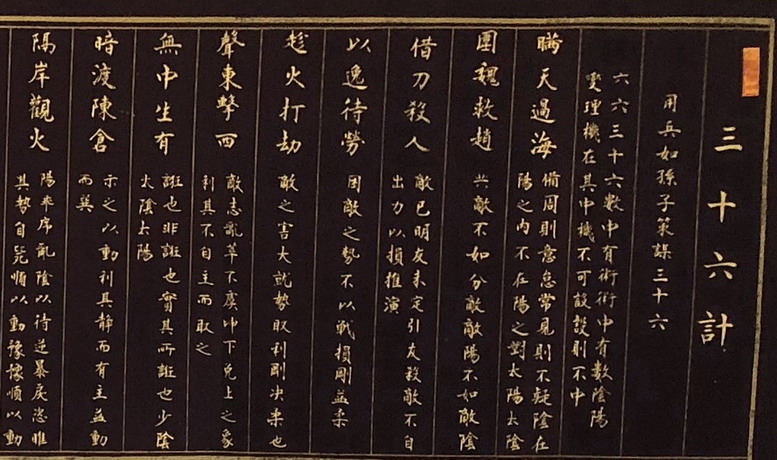 三十六計
用兵如孫子策謀三十六
六六三十六數中有術術中有數陰陽
燮理機在其中機不可設設則不中
瞞天過海
備周則意怠常見則不疑陰在
陽之內不在陽之對太陽太陰
圍魏救趙
共敵不如分敵敵陽不如敵陰
借刀殺人
敵已明友未定引友殺敵不自
出力以損推演
以逸待勞
困敵之勢不以戰損剛益柔
趁火打劫
敵之害大就勢取利剛決柔也
聲東擊西
敵志亂萃不虞坤下兌上之象
利其不自主而取之
無中生有
誑也非誑也實其所誑也少陰
太陰太陽
暗渡陳倉
示之以動利其靜而有主益動
而巽
隔岸觀火
陽乖序亂陰以待逆暴戾恣睢
其勢自斃順以動豫豫順以動